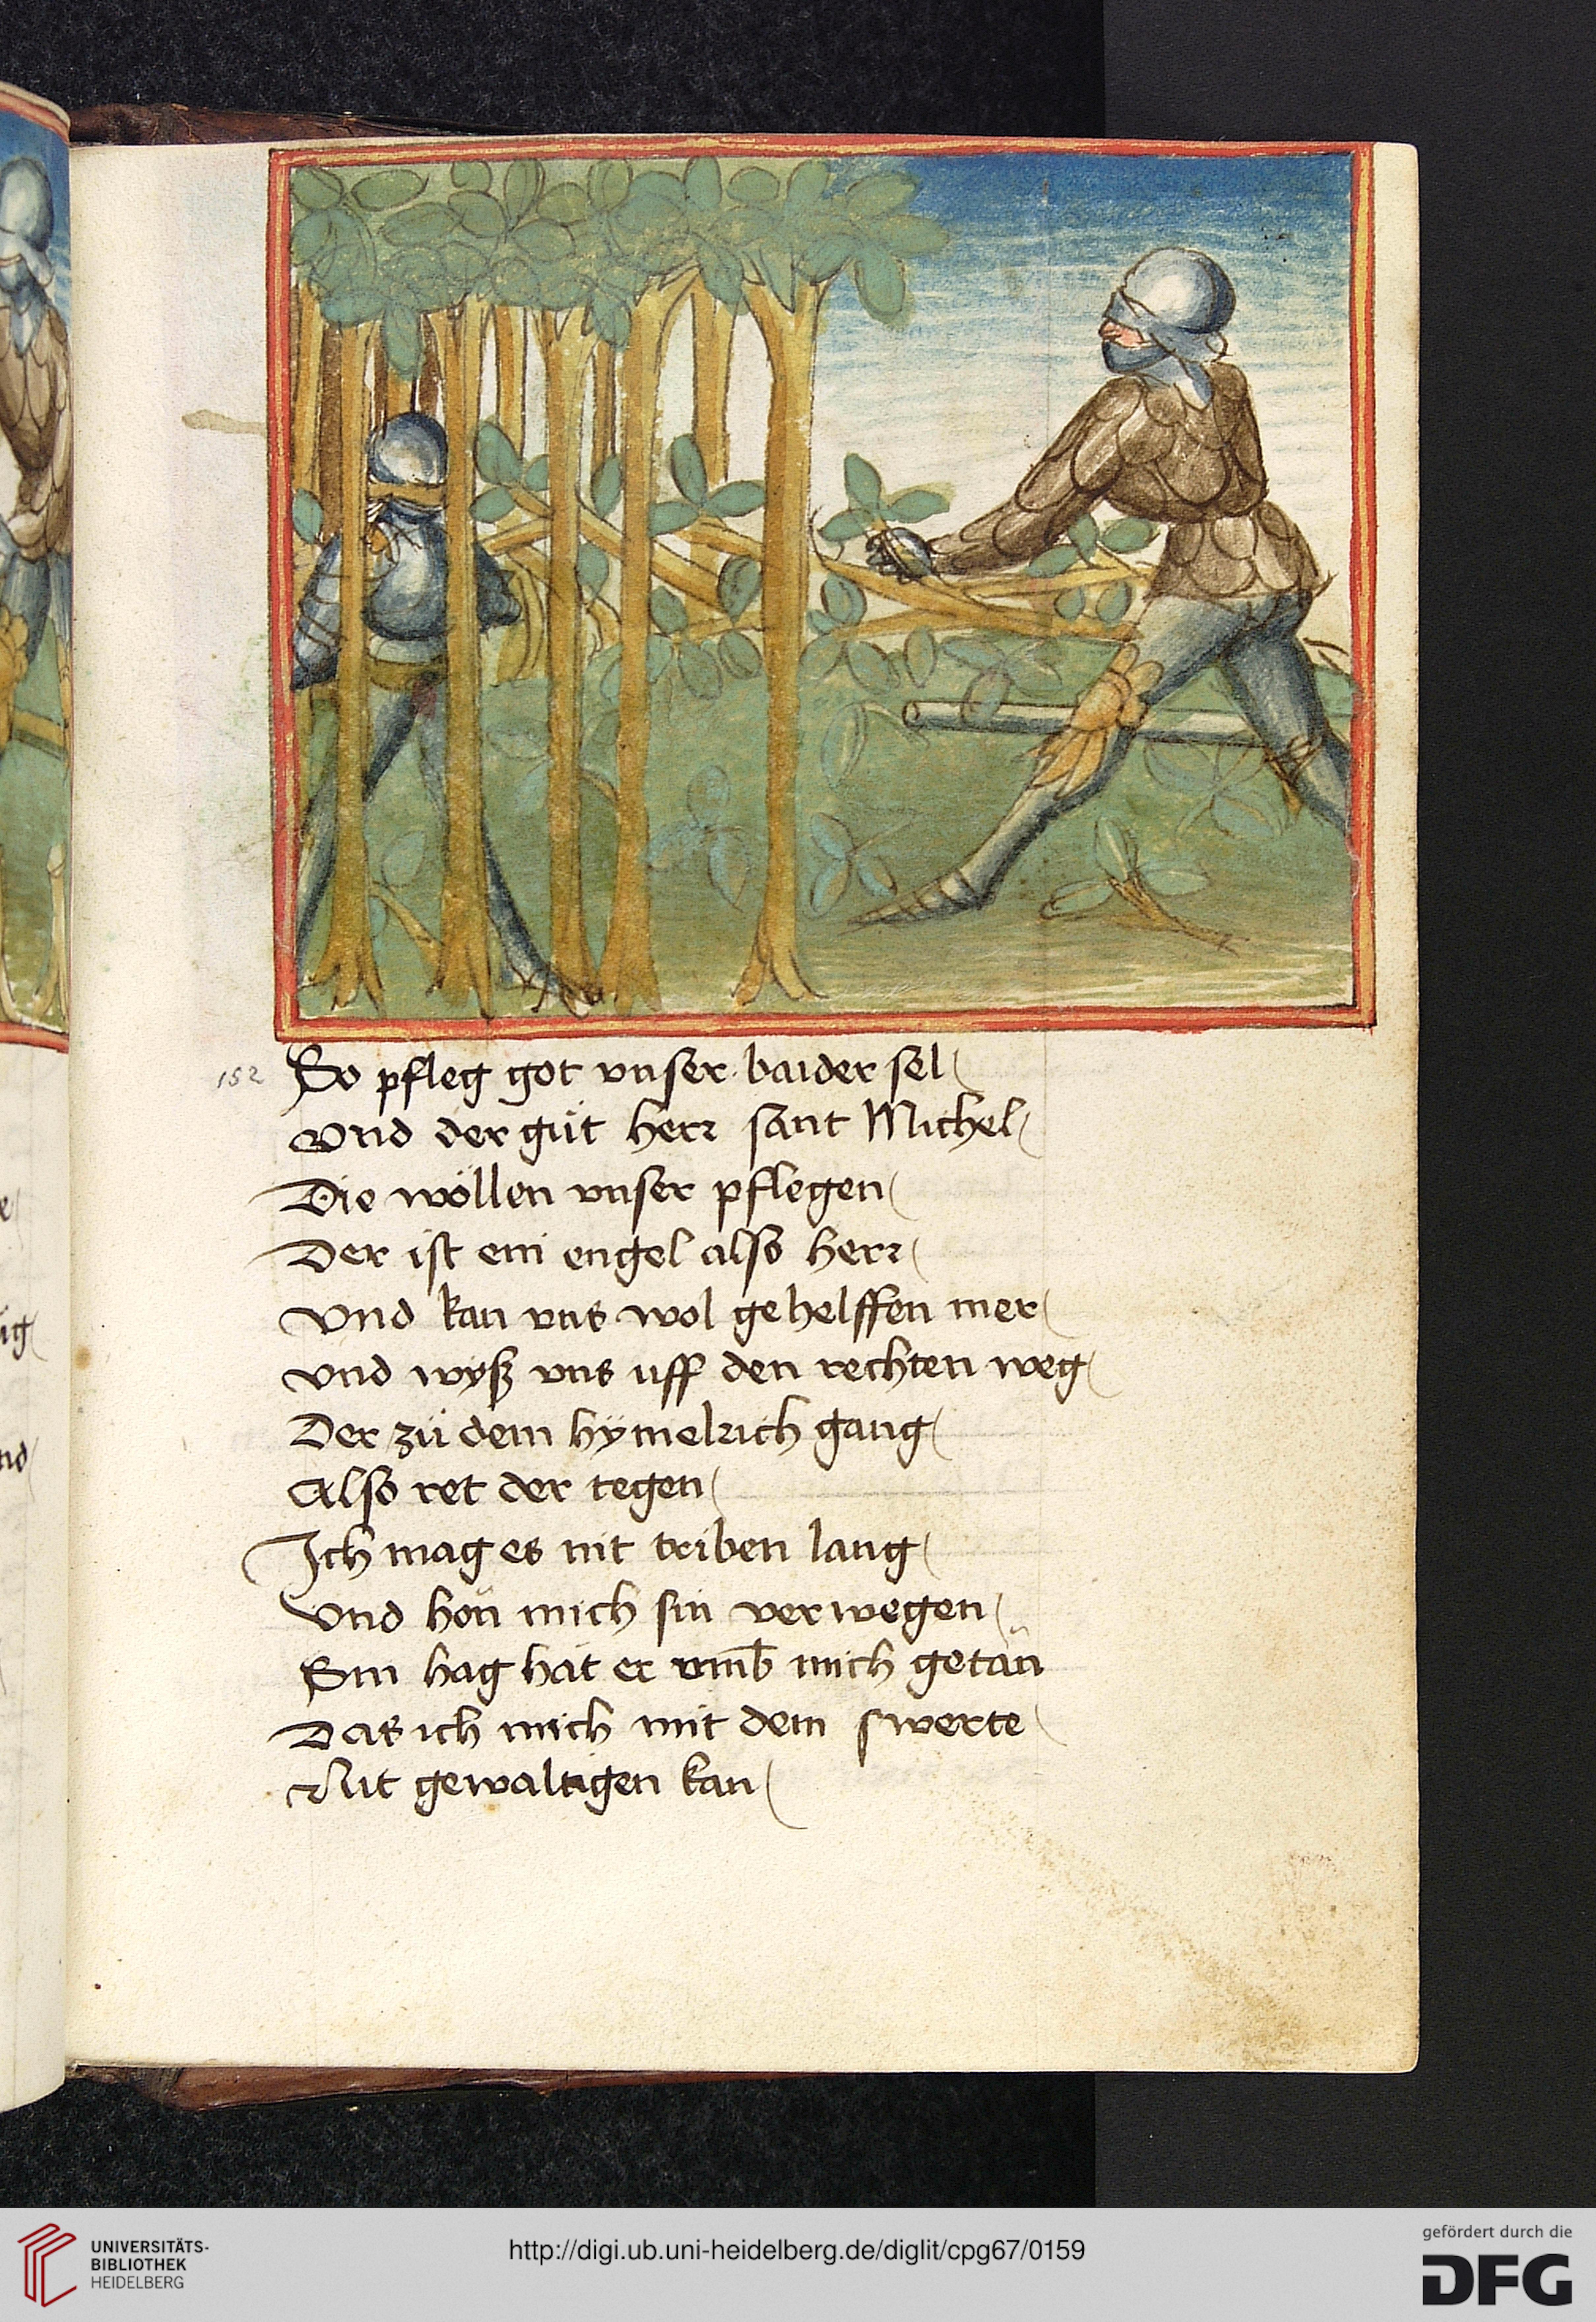 e
ig
nd
152
So pfleg got vnser baider sel
Vnd der güt herr sant Michel
Die wöllen vnser pflegen
Der ist ein engel also herr
Vnd kan vns wol gehelffen mer
vnd wyß vns uff den rechten weg
Der zü dem hÿmelrich gang
Also ret der tegen
Ich mag es nit triben lang
Vnd hön mich sin verwegen
Sin hag hät er vmb mich getän
Das ich mich mit dem swerte
Nit gewaltigen kan
UNIVERSITÄTS-
BIBLIOTHEK
HEIDELBERG
http://digi.ub.uni-heidelberg.de/diglit/cpg67/0159
gefördert durch die
DFG